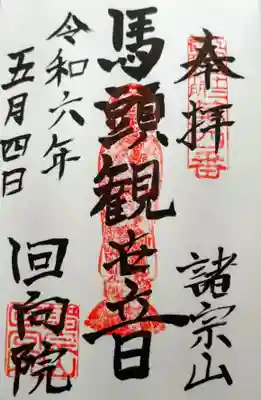 奉拝
諸宗山
馬頭観世音
令和六年
五月四日
回向院